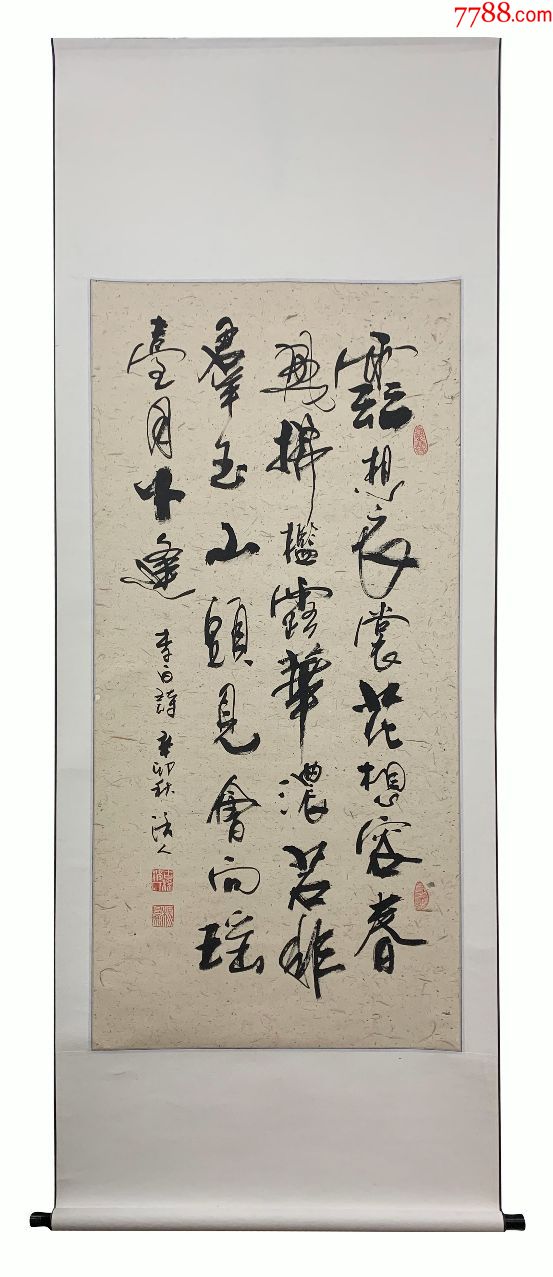 7788.com
雲想衣裳花想容春
風拂檻露華濃若非
羣玉山頭見會向瑶
臺月下逢
李白詩 辛卯秋 浩人